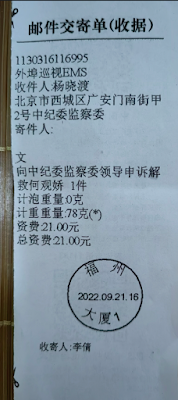 邮件交寄单(收据)
1130316116995
外埠巡视EMS
收件人:杨晓渡
北京市西城区广安门南街甲
2号中纪委监察委
寄件人:
文
向中纪委监察委领导申诉解
救何观娇 1件
计泡重量:0克
计重重量:78克(*)
资费:21.00元
总资费:21.00元
福州
2022.09.21.16
大厦1
收寄人:李倩